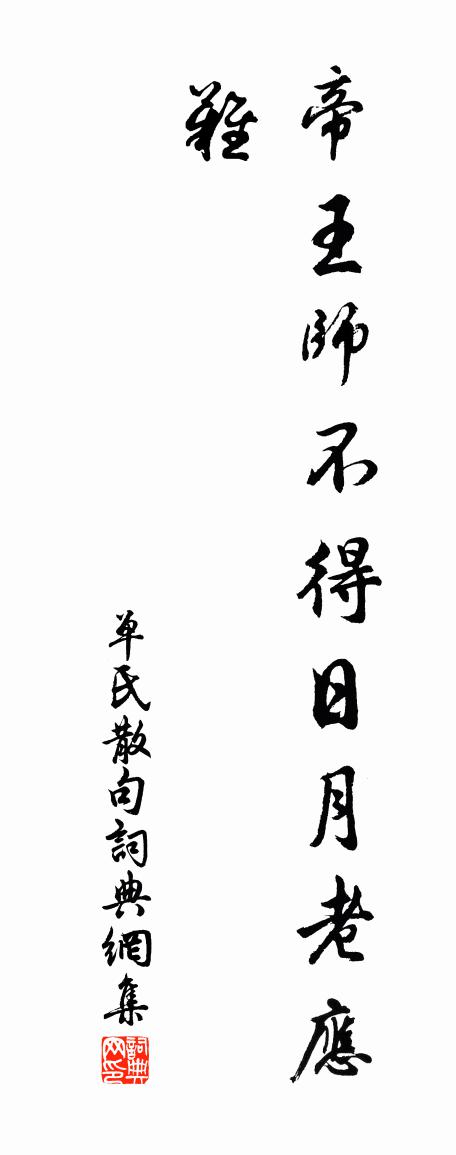 帝王師不得日月老應
難
單氏散句詞典網集
詞典网印